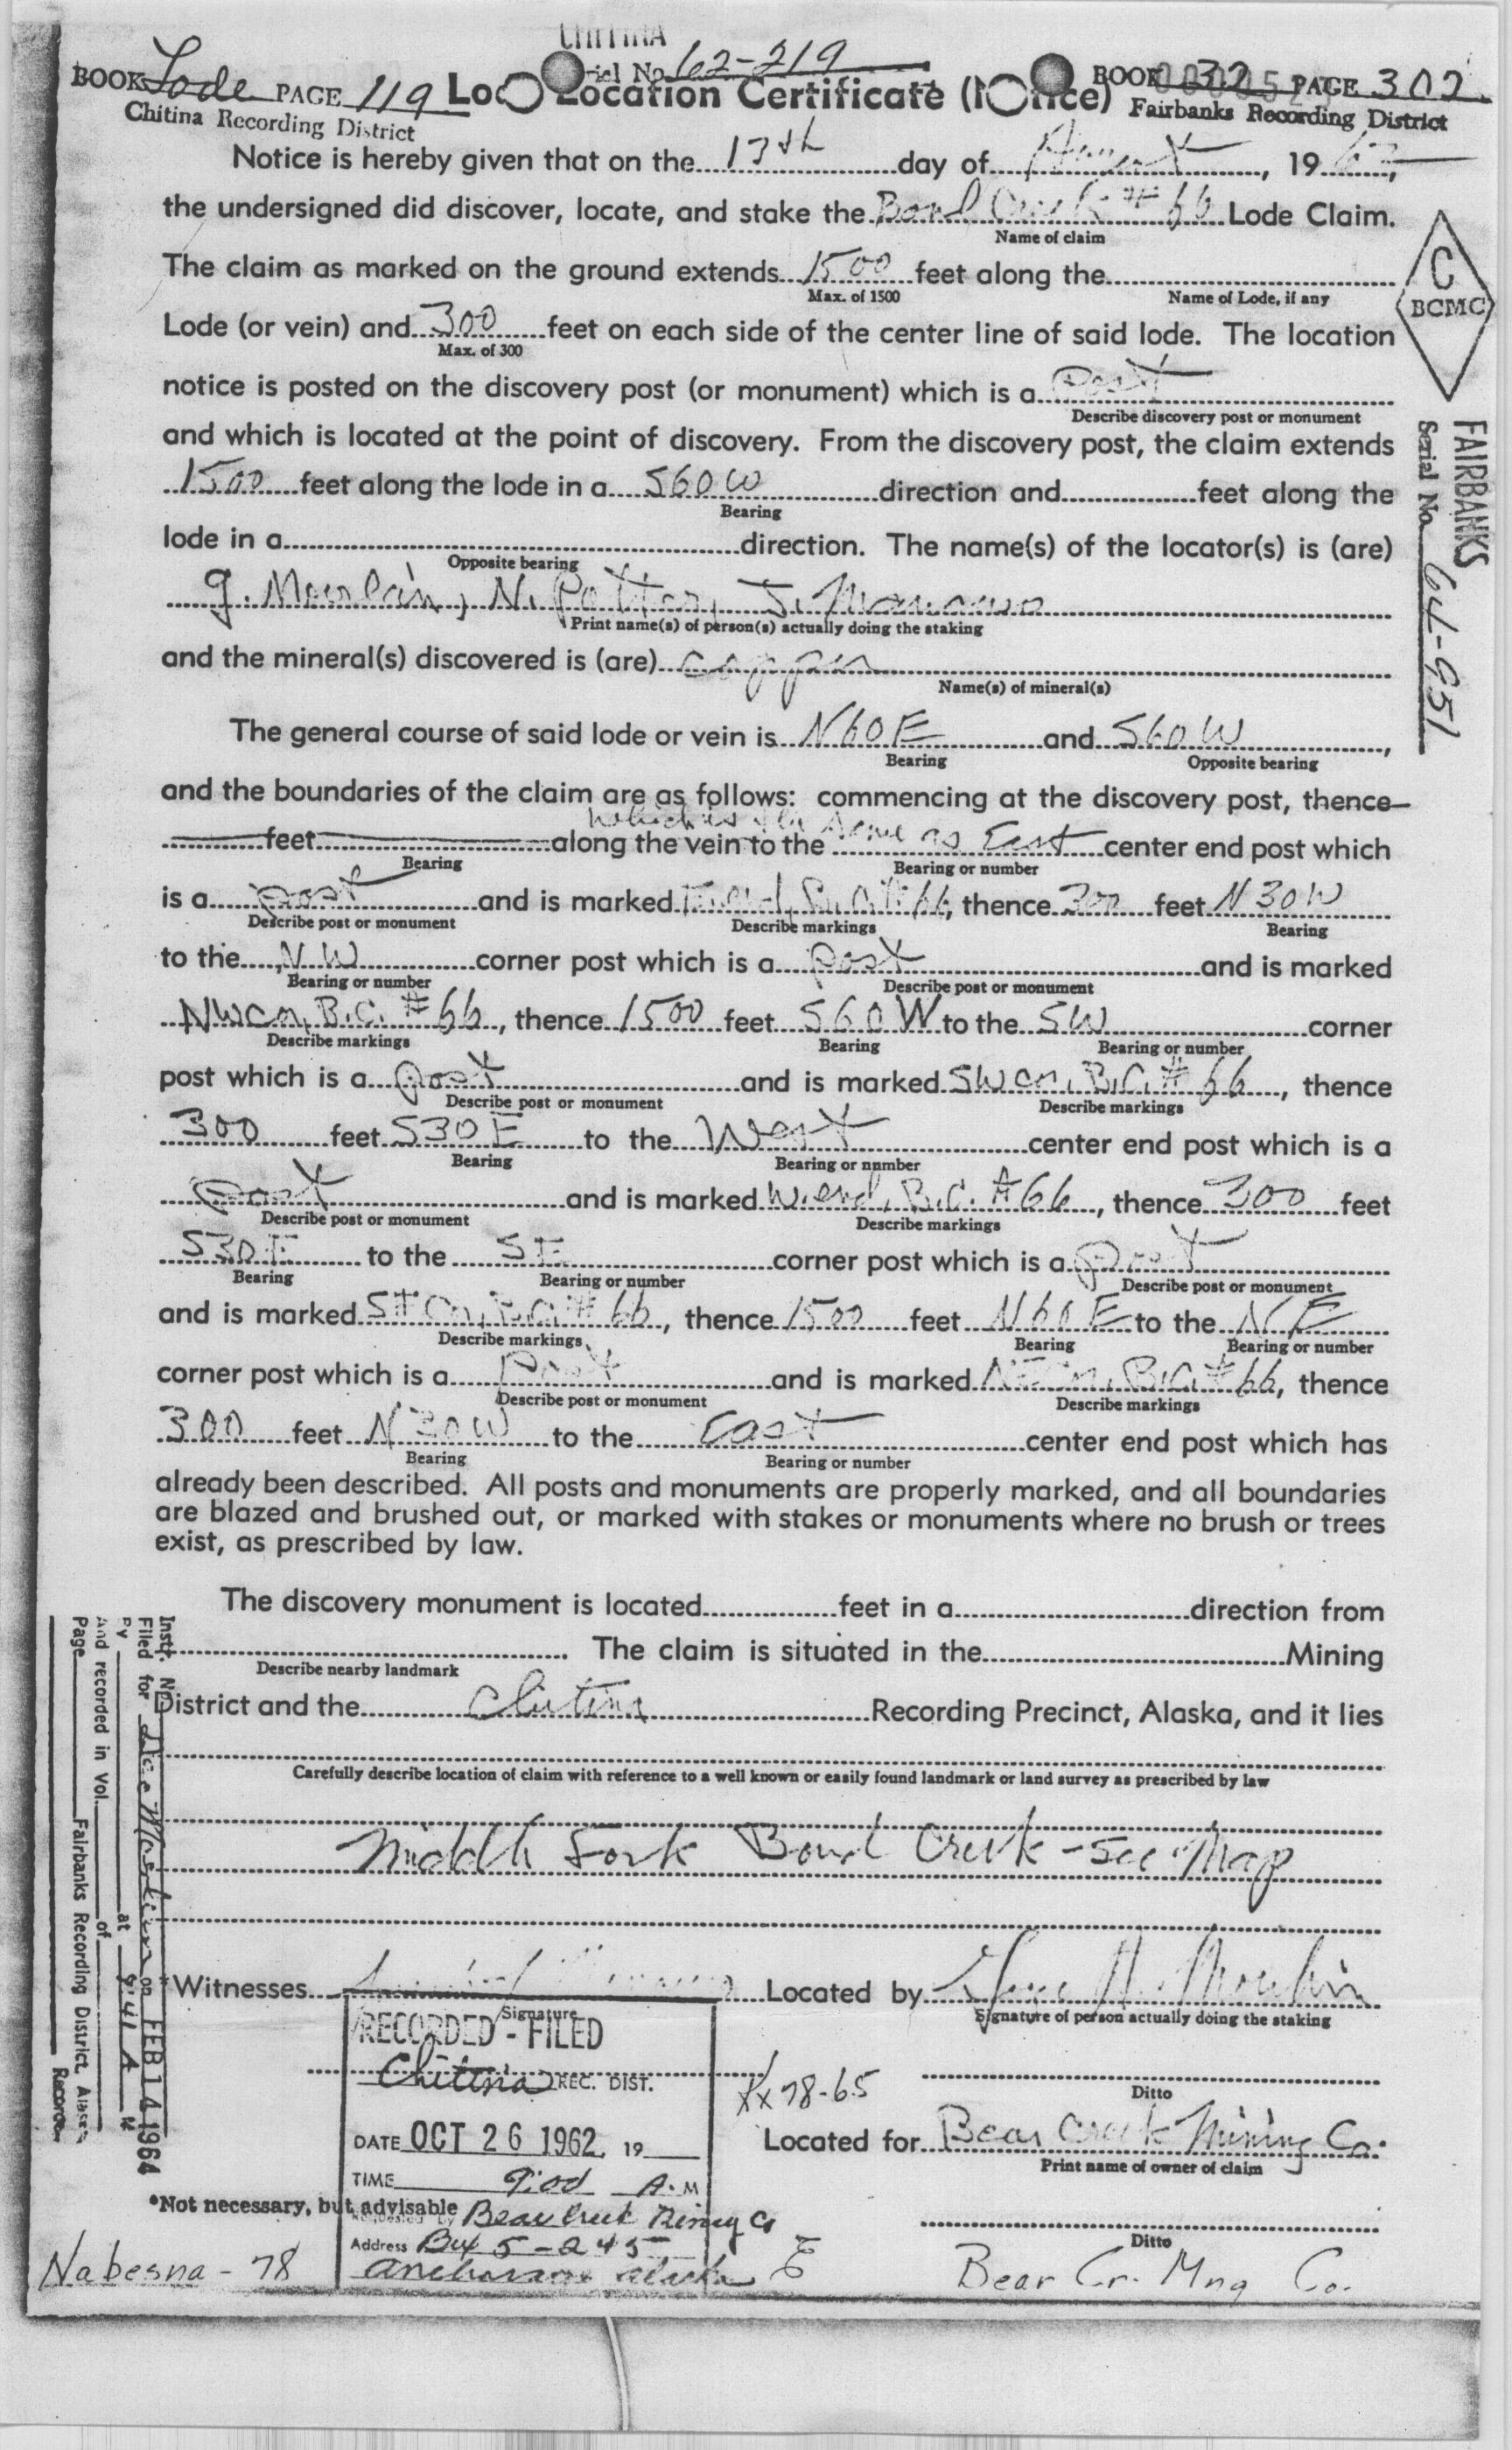 CHITINA
Serial No. 62-219
BOOK Lode PAGE 119
Chitina Recording District
Location Certificate (Notice)
BOOK 32 PAGE 302
Fairbanks Recording District
Notice is hereby given that on the 13th day of August, 19 62,
the undersigned did discover, locate, and stake the Bond Creek # 66 Lode Claim.
Name of claim
The claim as marked on the ground extends 1500 feet along the
Max. of 1500 Name of Lode, if any
Lode (or vein) and 300 feet on each side of the center line of said lode. The location
Max. of 300
notice is posted on the discovery post (or monument) which is a post
Describe discovery post or monument
and which is located at the point of discovery. From the discovery post, the claim extends
1500 feet along the lode in a S60W direction and feet along the
Bearing
lode in a direction. The name(s) of the locator(s) is (are)
Opposite bearing
G. Moerlein, N. Potter,
Print name(s) of person(s) actually doing the staking
and the mineral(s) discovered is (are) copper
Name(s) of mineral(s)
The general course of said lode or vein is N60E and S60W,
Bearing Opposite bearing
and the boundaries of the claim are as follows: commencing at the discovery post, thence
which is the same as East
feet along the vein to the center end post which
Bearing Bearing or number
is a post and is marked #66, thence 300 feet N30W
Describe post or monument Describe markings Bearing
to the NW corner post which is a post and is marked
Bearing or number Describe post or monument
NW cn, B.C. #66, thence 1500 feet S60W to the SW corner
Describe markings Bearing Bearing or number
post which is a post and is marked SW cn, B.C. #66, thence
Describe post or monument Describe markings
300 feet S30E to the West center end post which is a
Bearing Bearing or number
post and is marked W. end, B.C. #66, thence 300 feet
Describe post or monument Describe markings
S30E to the SE corner post which is a post
Bearing Bearing or number Describe post or monument
and is marked SE Cn, B.C. #66, thence 1500 feet N60E to the NE
Describe markings Bearing Bearing or number
corner post which is a post and is marked NE Cn, B.C. #66, thence
Describe post or monument Describe markings
300 feet N30W to the East center end post which has
Bearing Bearing or number
already been described. All posts and monuments are properly marked, and all boundaries
are blazed and brushed out, or marked with stakes or monuments where no brush or trees
exist, as prescribed by law.
The discovery monument is located feet in a direction from
. The claim is situated in the Mining
Describe nearby landmark
District and the Chitina Recording Precinct, Alaska, and it lies
Carefully describe location of claim with reference to a well known or easily found landmark or land survey as prescribed by law
Middle Fork Bond Creek - See Map
*Witnesses Located by
Signature Signature of person actually doing the staking
RECORDED - FILED
Chitina REC. DIST.
Ditto
Xx 78-65
DATE OCT 26 1962 19
Located for Bear Creek Mining Co.
Print name of owner of claim
TIME 9:00 A.M
*Not necessary, but advisable
Requested by Bear Creek Mining Co
Address Box 5-245
Anchorage Alaska
Ditto
Nabesna - 78
Bear Cr. Mng Co.
C
BCMC
FAIRBANKS
Serial No. 64-951
Instr. No.
Filed for on FEB 14 1964
By at 9:41 A M
And recorded in Vol. of
Page Fairbanks Recording District, Alaska
Recorder